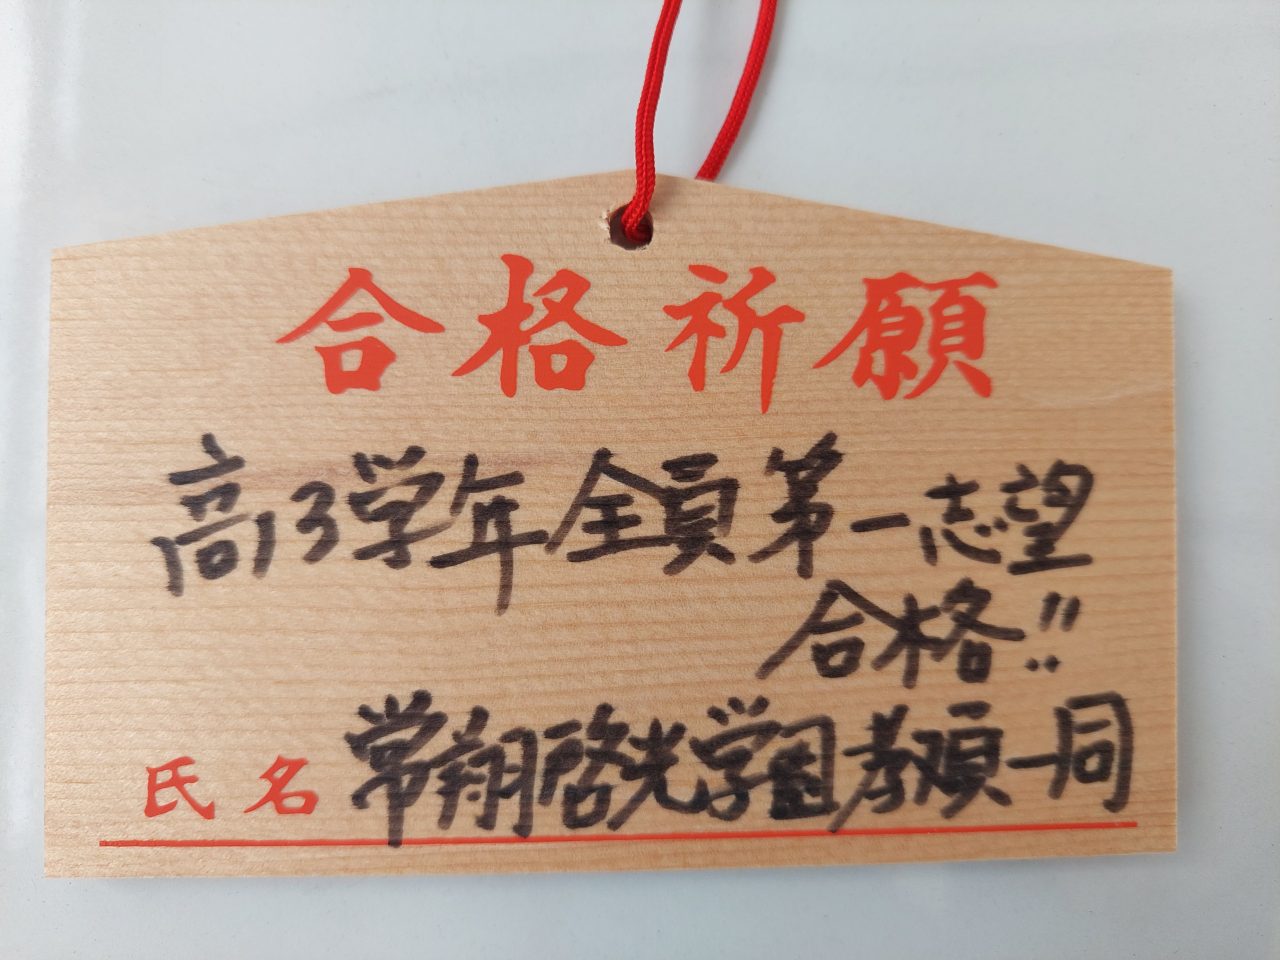 合格祈願
高3学年全員第一志望
合格!!
氏名 常翔啓光学園教員一同